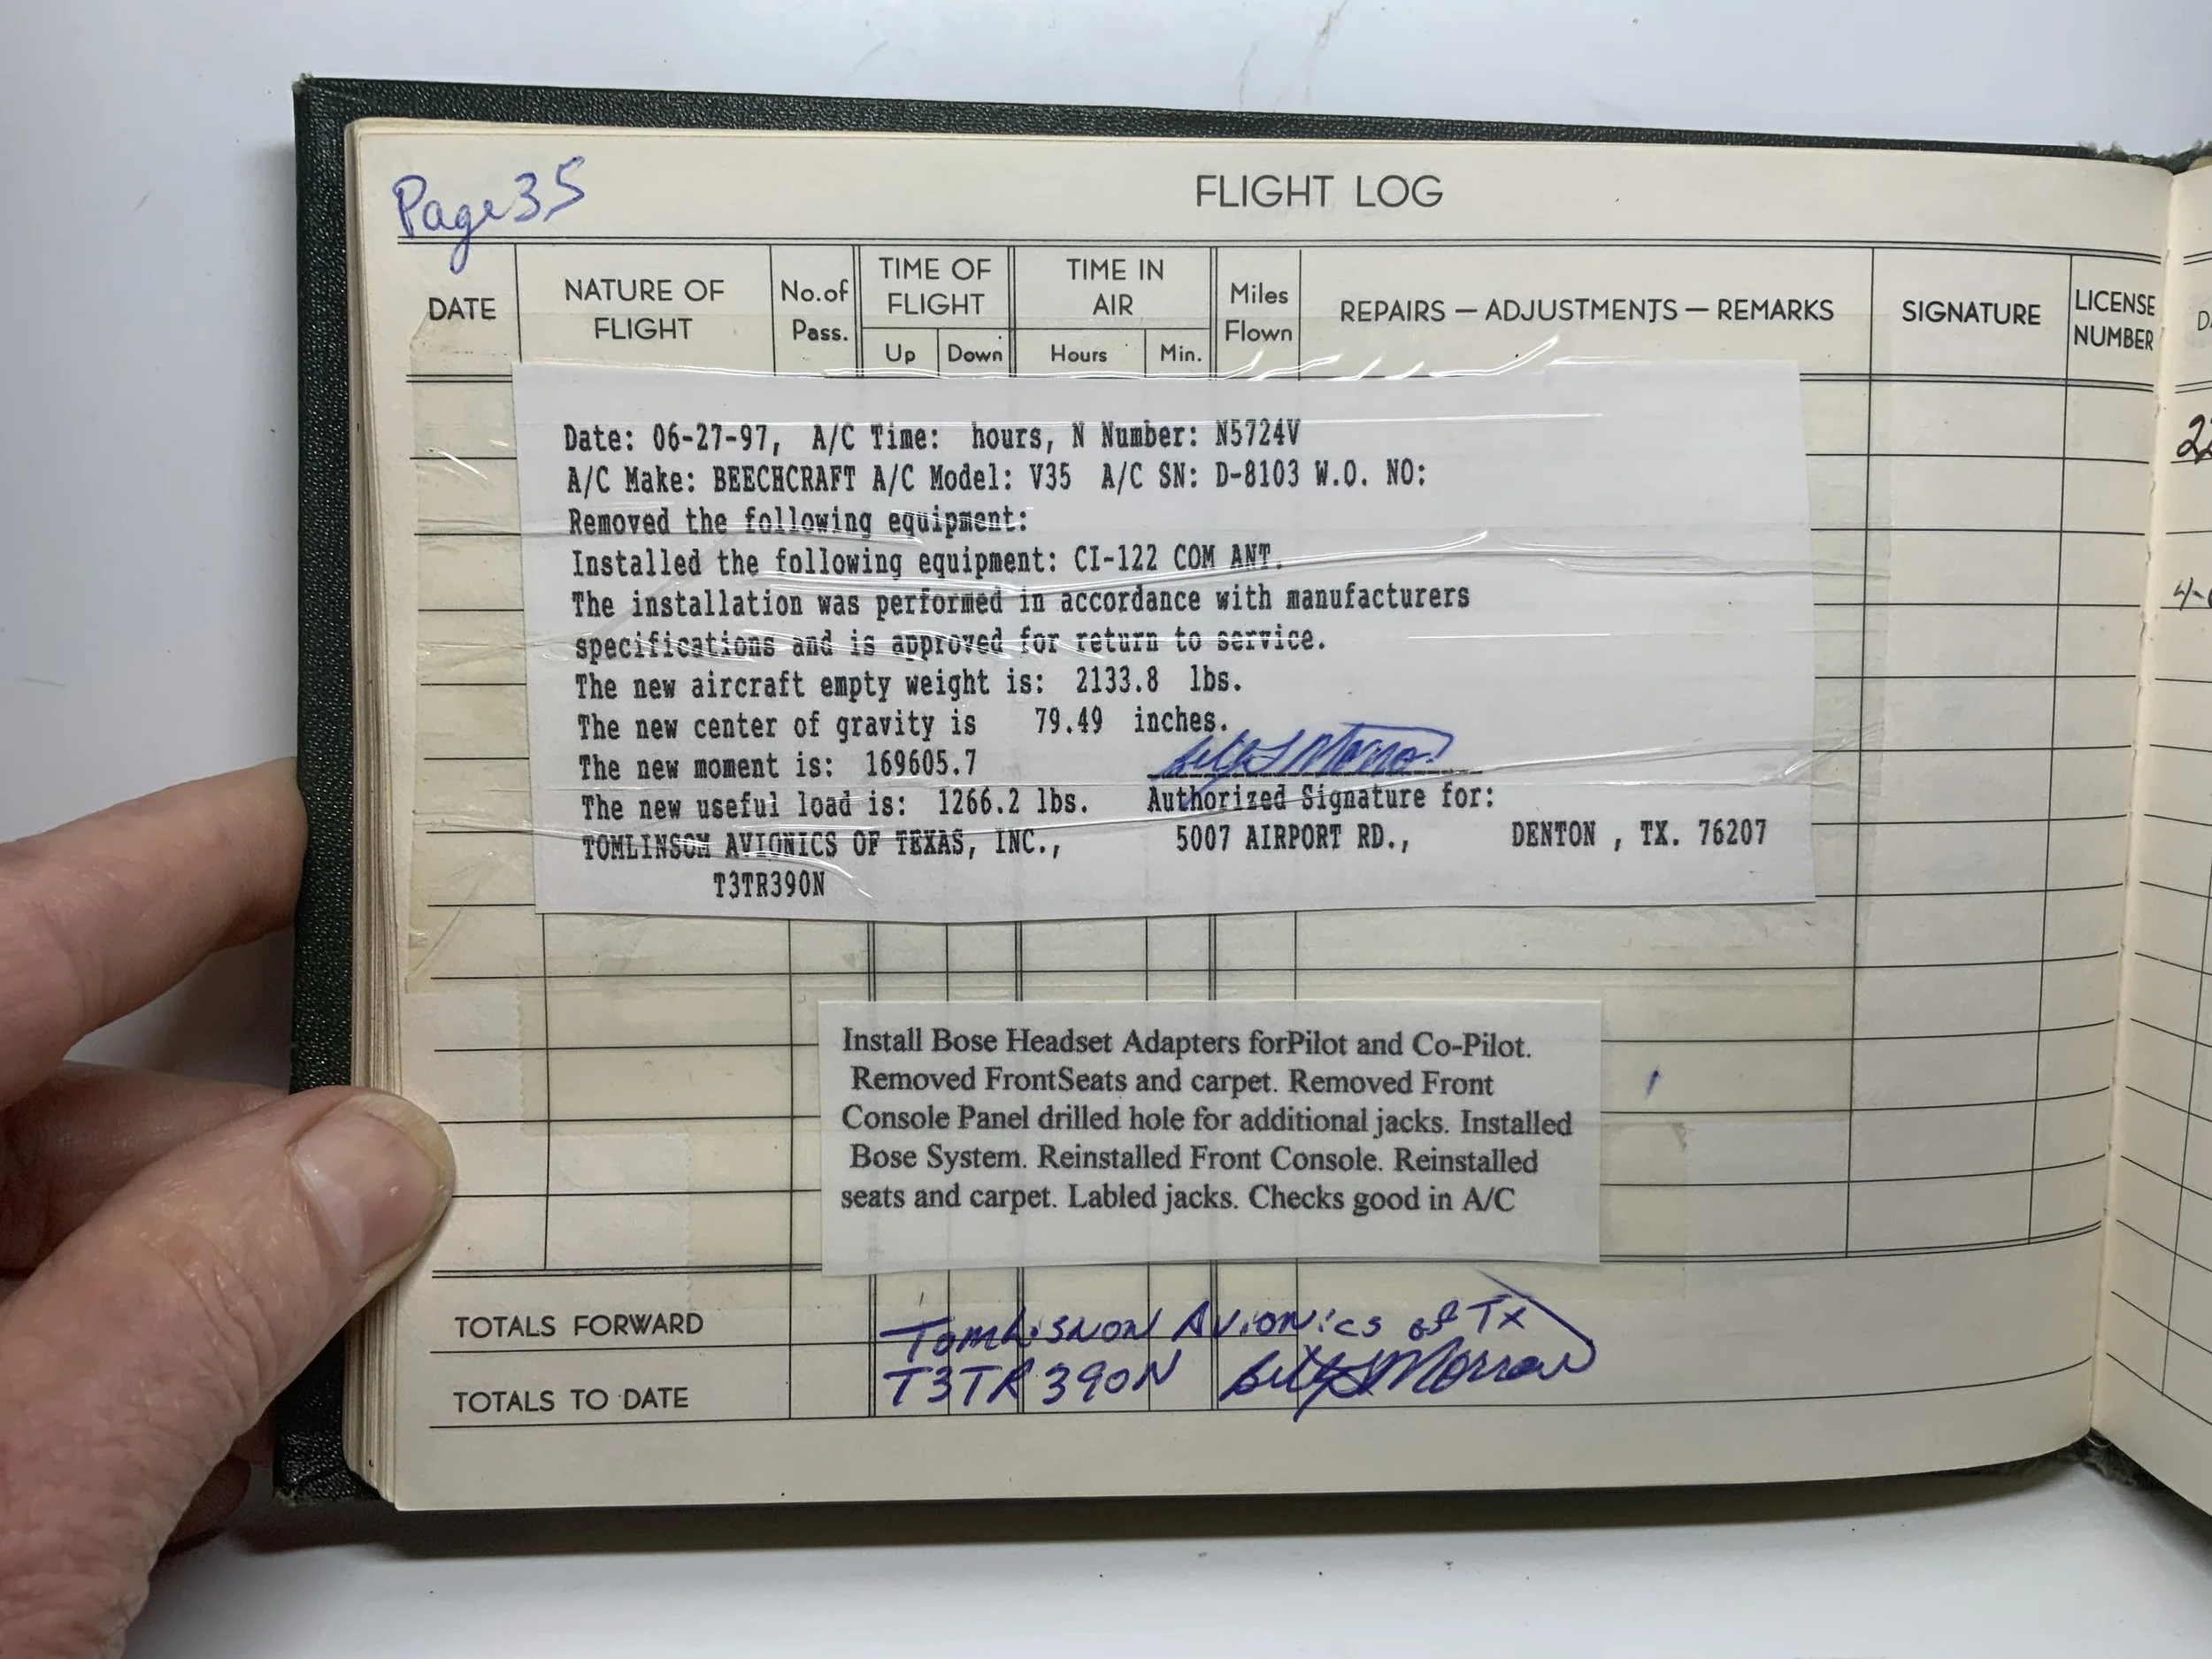 Page 35
FLIGHT LOG
DATE
NATURE OF FLIGHT
No.of Pass.
TIME OF FLIGHT
Up Down
TIME IN AIR
Hours Min.
Miles Flown
REPAIRS — ADJUSTMENTS — REMARKS
SIGNATURE
LICENSE NUMBER
Date: 06-27-97, A/C Time: hours, N Number: N5724V
A/C Make: BEECHCRAFT A/C Model: V35 A/C SN: D-8103 W.O. NO:
Removed the following equipment:
Installed the following equipment: CI-122 COM ANT.
The installation was performed in accordance with manufacturers
specifications and is approved for return to service.
The new aircraft empty weight is: 2133.8 lbs.
The new center of gravity is 79.49 inches.
The new moment is: 169605.7
The new useful load is: 1266.2 lbs. Authorized Signature for:
TOMLINSOM AVIONICS OF TEXAS, INC., 5007 AIRPORT RD., DENTON , TX. 76207
T3TR390N
Install Bose Headset Adapters forPilot and Co-Pilot.
Removed FrontSeats and carpet. Removed Front
Console Panel drilled hole for additional jacks. Installed
Bose System. Reinstalled Front Console. Reinstalled
seats and carpet. Labled jacks. Checks good in A/C
TOTALS FORWARD
Tomlisnon Avionics of Tx
TOTALS TO DATE
T3TR390N